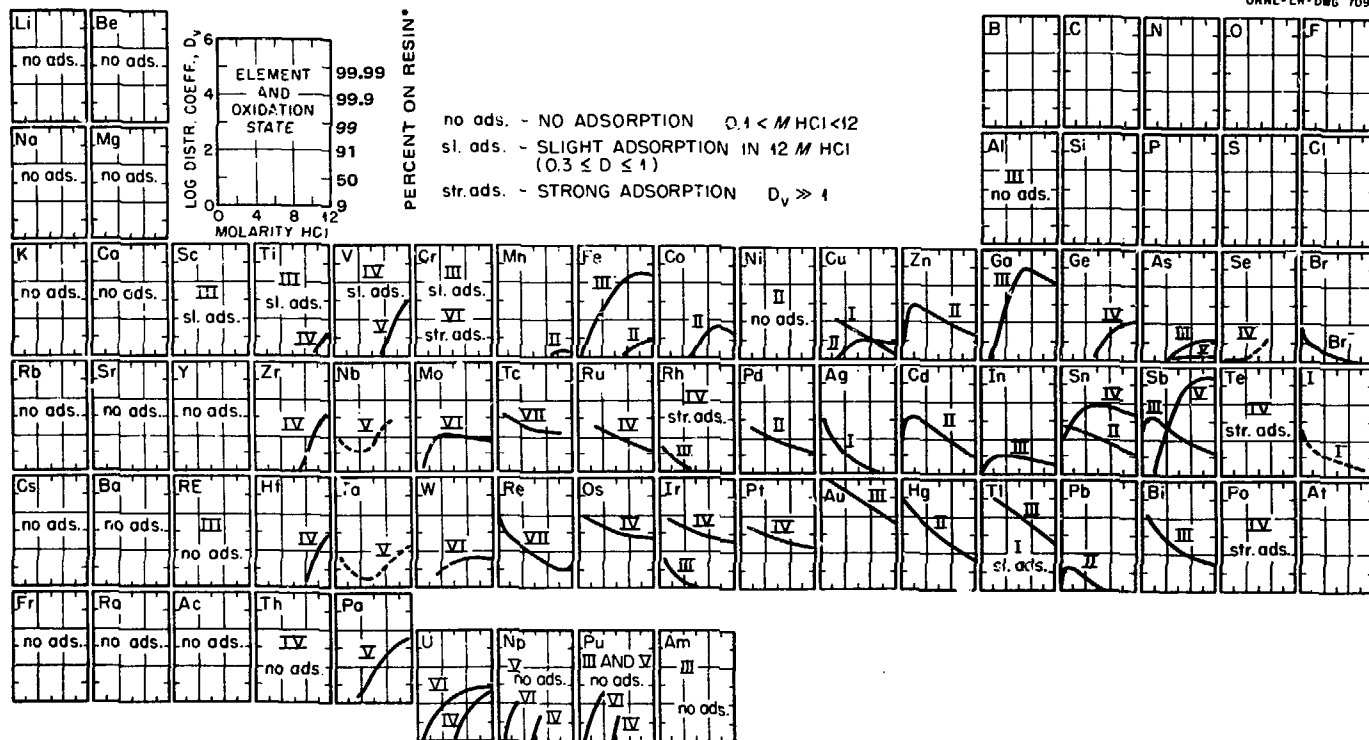 ORNL-LR-DWG 709
Li
no ads.
Be
no ads.
LOG DISTR. COEFF., Dv
6
4
2
0
ELEMENT
AND
OXIDATION
STATE
99.99
99.9
99
91
50
9
PERCENT ON RESIN*
0 4 8 12
MOLARITY HCl
no ads. - NO ADSORPTION 0.1 < M HCl < 12
sl. ads. - SLIGHT ADSORPTION IN 12 M HCl
(0.3 ≤ D ≤ 1)
str. ads. - STRONG ADSORPTION Dv ≫ 1
B
C
N
O
F
Na
no ads.
Mg
no ads.
Al
III
no ads.
Si
P
S
Cl
K
no ads.
Ca
no ads.
Sc
III
sl. ads.
Ti
III
sl. ads.
IV
V
IV
sl. ads.
V
Cr
III
sl. ads.
VI
str. ads.
Mn
II
Fe
III
II
Co
II
Ni
II
no ads.
Cu
I
II
Zn
II
Ga
III
Ge
IV
As
III
V
Se
IV
Br
Br
Rb
no ads.
Sr
no ads.
Y
no ads.
Zr
IV
Nb
V
Mo
VI
Tc
VII
Ru
IV
Rh
IV
str. ads.
III
Pd
II
Ag
I
Cd
II
In
III
Sn
IV
II
Sb
III
V
Te
IV
str. ads.
I
I
Cs
no ads.
Ba
no ads.
RE
III
no ads.
Hf
IV
Ta
V
W
VI
Re
VII
Os
IV
Ir
IV
III
Pt
IV
Au
III
Hg
II
Tl
III
I
sl. ads.
Pb
II
Bi
III
Po
IV
str. ads.
At
Fr
no ads.
Ra
no ads.
Ac
no ads.
Th
IV
no ads.
Pa
V
U
VI
IV
Np
V
no ads.
VI
IV
Pu
III AND V
no ads.
VI
IV
Am
III
no ads.